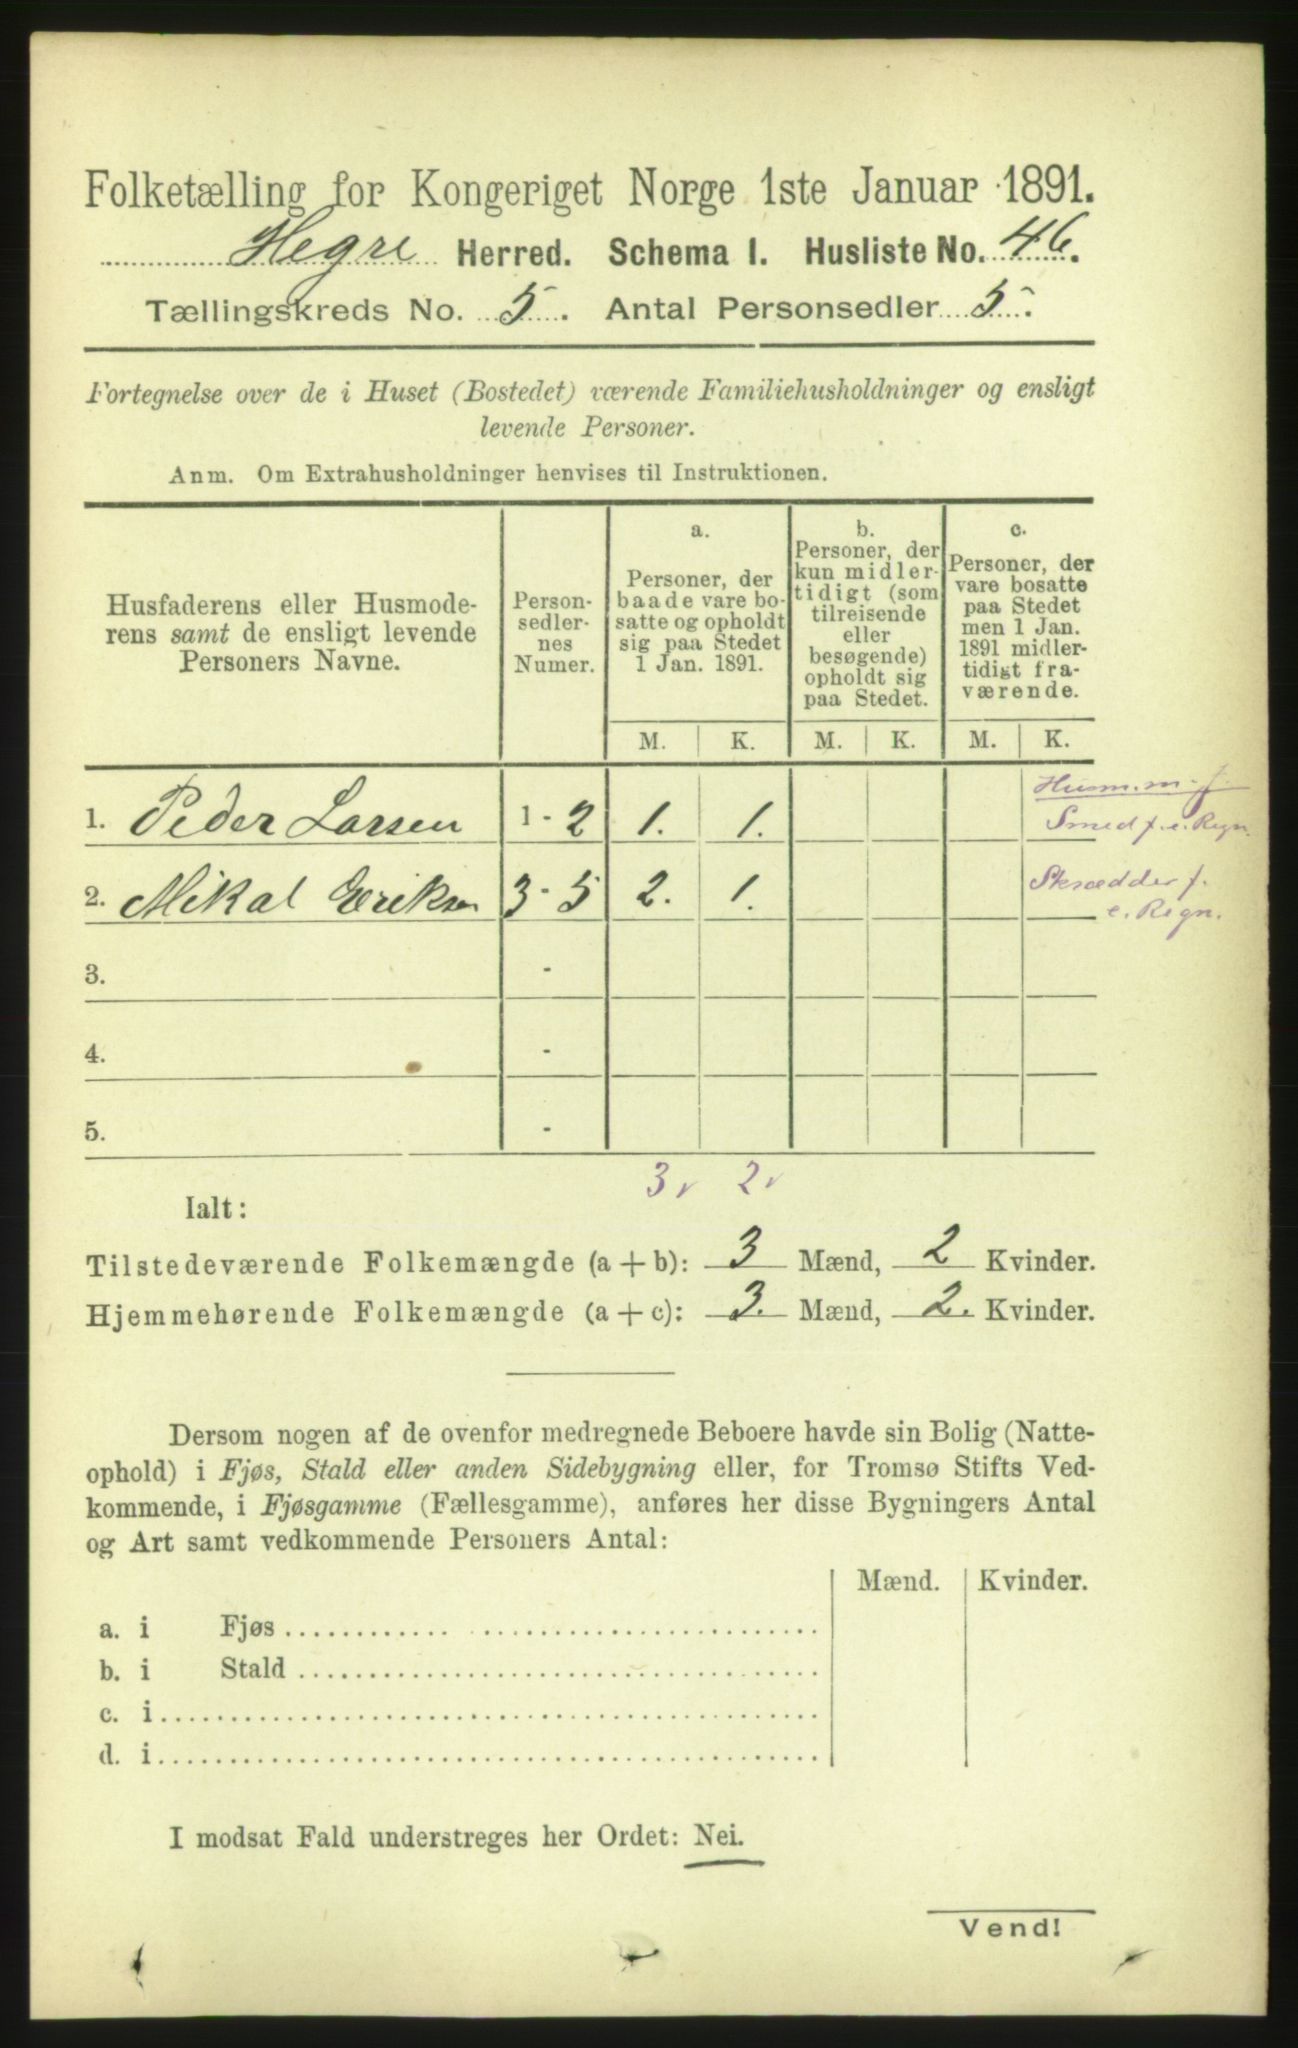 Folketælling for Kongeriget Norge 1ste Januar 1891.
Hegre Herred. Schema I. Husliste No. 46.
Tællingskreds No. 5. Antal Personsedler 5.
Fortegnelse over de i Huset (Bostedet) værende Familiehusholdninger og ensligt
levende Personer.
Anm. Om Extrahusholdninger henvises til Instruktionen.
Husfaderens eller Husmode-
rens samt de ensligt levende
Personers Navne.
Person-
sedler-
nes
Numer.
a.
Personer, der
baade vare bo-
satte og opholdt
sig paa Stedet
1 Jan. 1891.
b.
Personer, der
kun midler-
tidigt (som
tilreisende
eller
besøgende)
opholdt sig
paa Stedet.
c.
Personer, der
vare bosatte
paa Stedet
men 1 Jan.
1891 midler-
tidigt fra-
værende.
M. K. M. K. M. K.
Husm. m. j.
1. Peder Larsen 1 - 2 1. 1.
Smed f. e. Regn.
2. Mikal Eriksen 3 - 5 2. 1. Skrædder f.
e. Regn.
3. -
4. -
5. -
3 v 2 v
Ialt:
Tilstedeværende Folkemængde (a + b): 3 Mænd, 2 Kvinder.
Hjemmehørende Folkemængde (a + c): 3. Mænd, 2. Kvinder.
Dersom nogen af de ovenfor medregnede Beboere havde sin Bolig (Natte-
ophold) i Fjøs, Stald eller anden Sidebygning eller, for Tromsø Stifts Ved-
kommende, i Fjøsgamme (Fællesgamme), anføres her disse Bygningers Antal
og Art samt vedkommende Personers Antal:
Mænd. Kvinder.
a. i Fjøs
b. i Stald
c. i
d. i
I modsat Fald understreges her Ordet: Nei.
Vend!